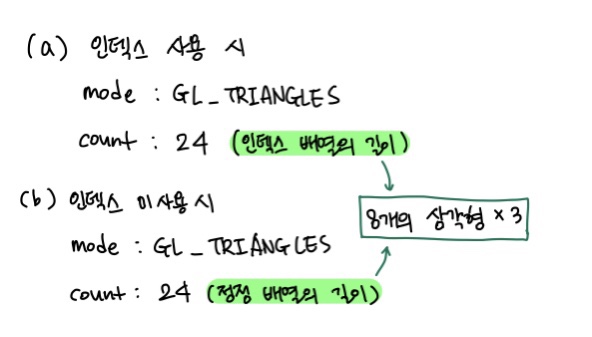 (a) 인덱스 사용 시
mode : GL_TRIANGLES
count : 24 (인덱스 배열의 길이)
(b) 인덱스 미사용 시
8개의 삼각형 × 3
mode : GL_TRIANGLES
count : 24 (정점 배열의 길이)